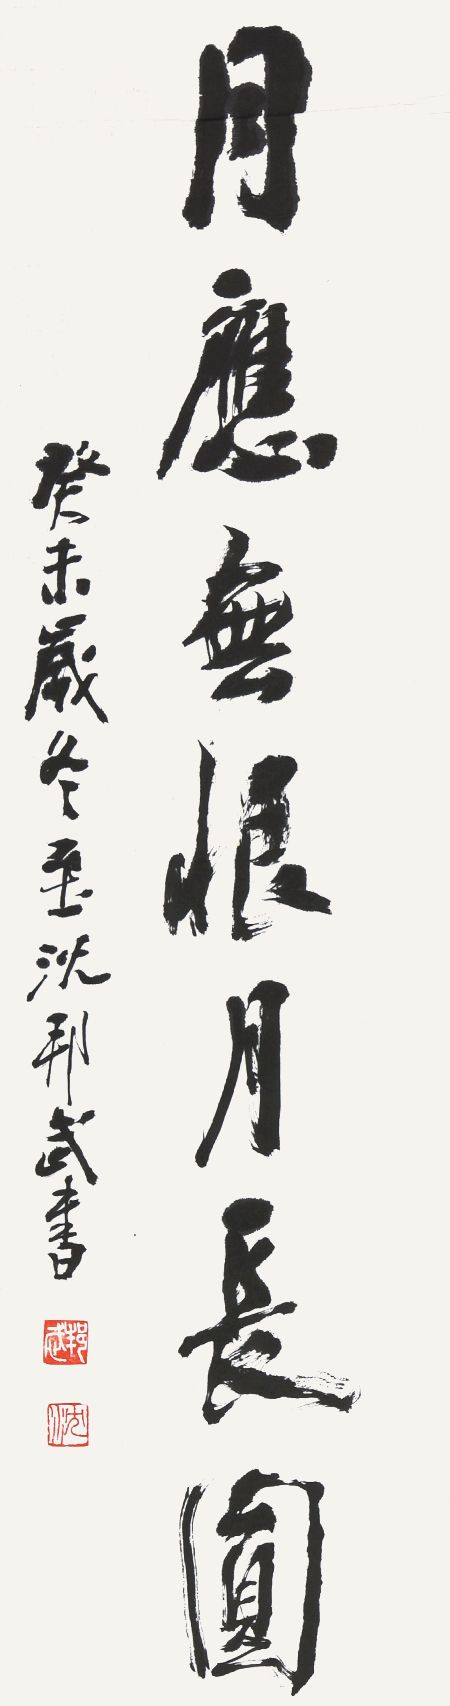 月應無恨月長圓
癸未歲冬至沈邦武書
邦武
沈